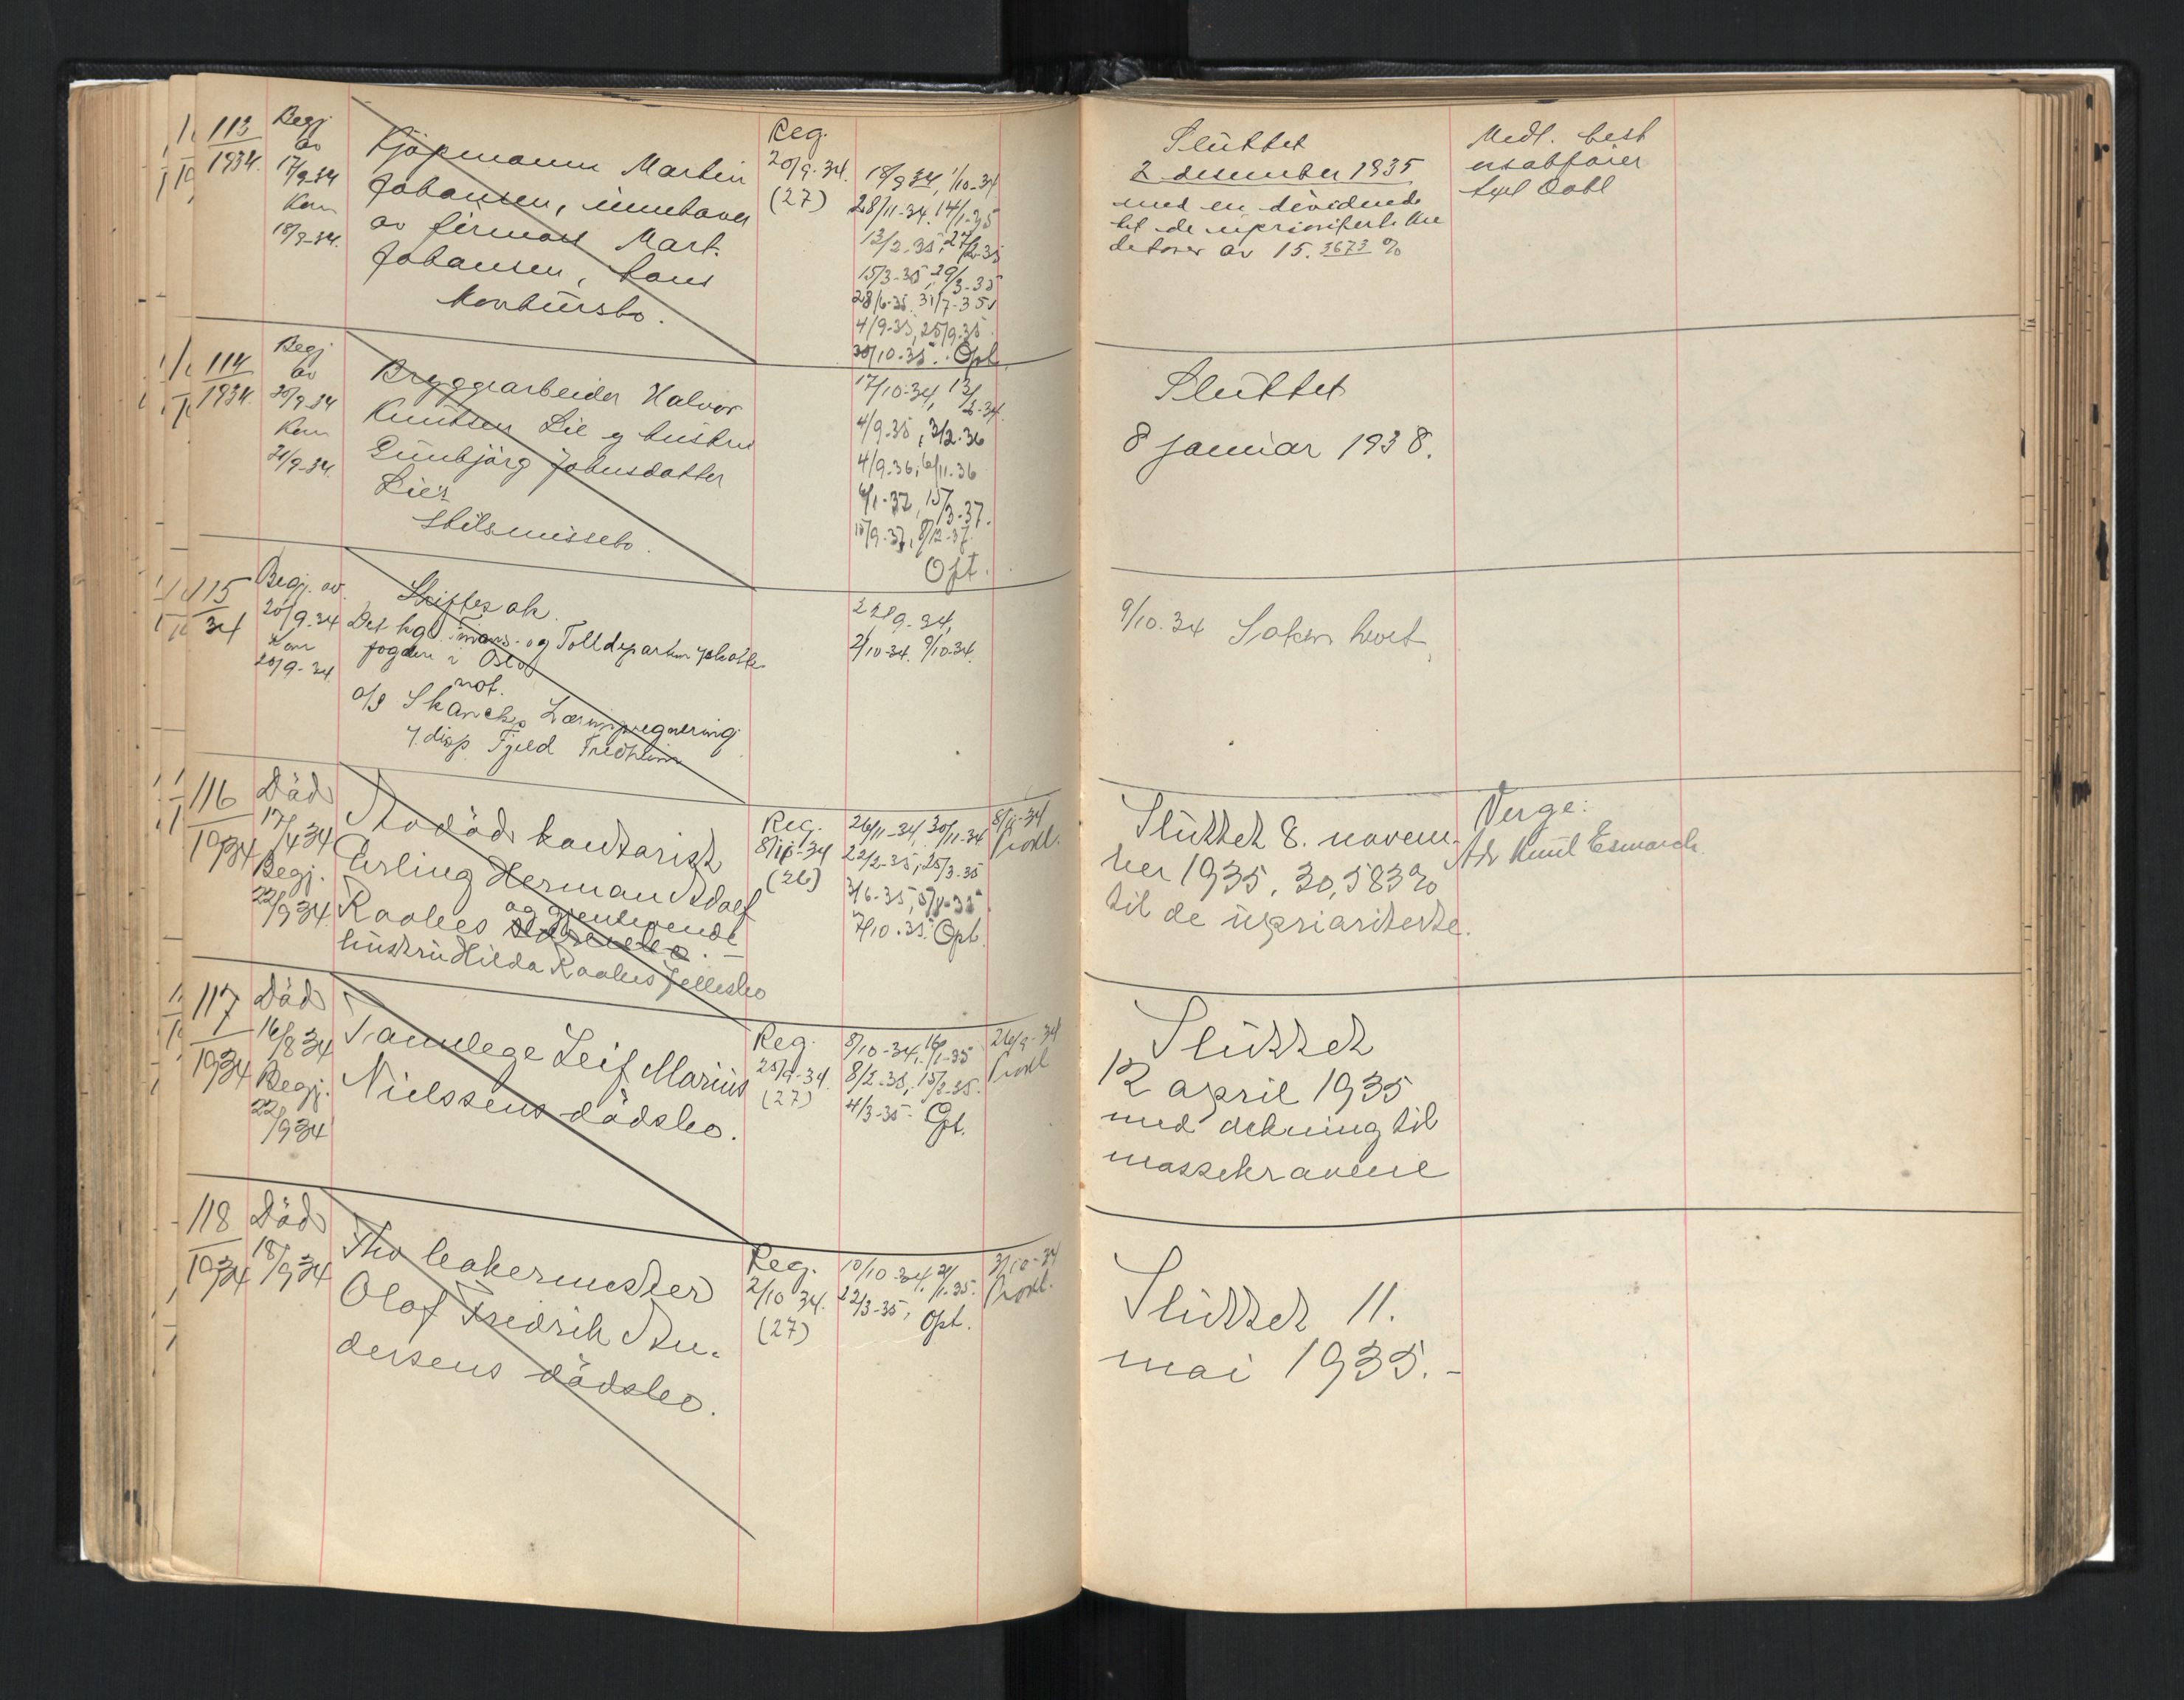 113
1934.
Begj
av
17/9-34
Kom
18/9-34.
Kjøpmann Martin
Johansen, innehaver
av firmaet Mart.
Johansen, hans
konkursbo.
Reg.
20/9-34.
(27)
18/9 34, 1/10-34
28/11-34. 14/1-35
13/2-35,
15/3-35, 29/3-35
28/6-35. 31/7-35
4/9-35, 25/9-35
30/10-35. Opt.
Sluttet
2 desember 1935
med en dividende
til de uprioriterte kre
ditorer av 15.3673 %
Medl. best
Dahl
114
1934.
Begj
av
20/9-34
Kom
21/9-34.
Bryggearbeider Halvor
Knutsen Lie og hustru
Gunbjørg Johnsdatter
Lie's
skilsmissebo.
17/10-34,
4/9-35, 3/2-36
4/9-36, 6/11-36
15/3-37.
15/9-37, 8/12-37.
Opt.
Sluttet
8 januar 1938.
115
34
Begj. av
20/9-34
Kom
20/9-34
Skiftesak.
Det kgl. Finans- og Tolldepartem
fogden i Oslo
mot.
a/s Skanckes
v. disp. Fjeld Fredheim
2/10-34. 9/10-34.
9/10.34 Saken hevet
116
1934
Død
17/4 34
Begj.
22/9 34.
Avdød kontorist
Erling Herman Adolf
og gjenlevende
Raabes
hustru Hilda Raabes fellesbo
Reg.
(26)
26/11-34, 30/11-34
22/2-35, 25/3-35
7/10.35. Opt.
8/11-34
Prokl.
Sluttet 8. novem-
ber 1935. 30,583%
til de uprioriterte.
Verge:
Adv Knut Esmarch.
117
1934
Død
16/8 34
Begj.
22/9 34
Tannlege Leif Marius
Nielssens dødsbo.
Reg.
25/9-34.
(27)
8/10-34, 16/1-35
8/2-35, 15/2-35.
4/3-35. Opt.
26/9-34
Prokl
Sluttet
12 april 1935
med dekning til
massekravene
118
1934
Død
18/9 34
Fhv bakermester
Olaf Fredrik An-
dersens dødsbo.
Reg.
2/10 34.
(27)
10/10-34, 21/1-35.
22/3-35, Opt.
3/10-34
Prokl.
Sluttet 11.
mai 1935.-